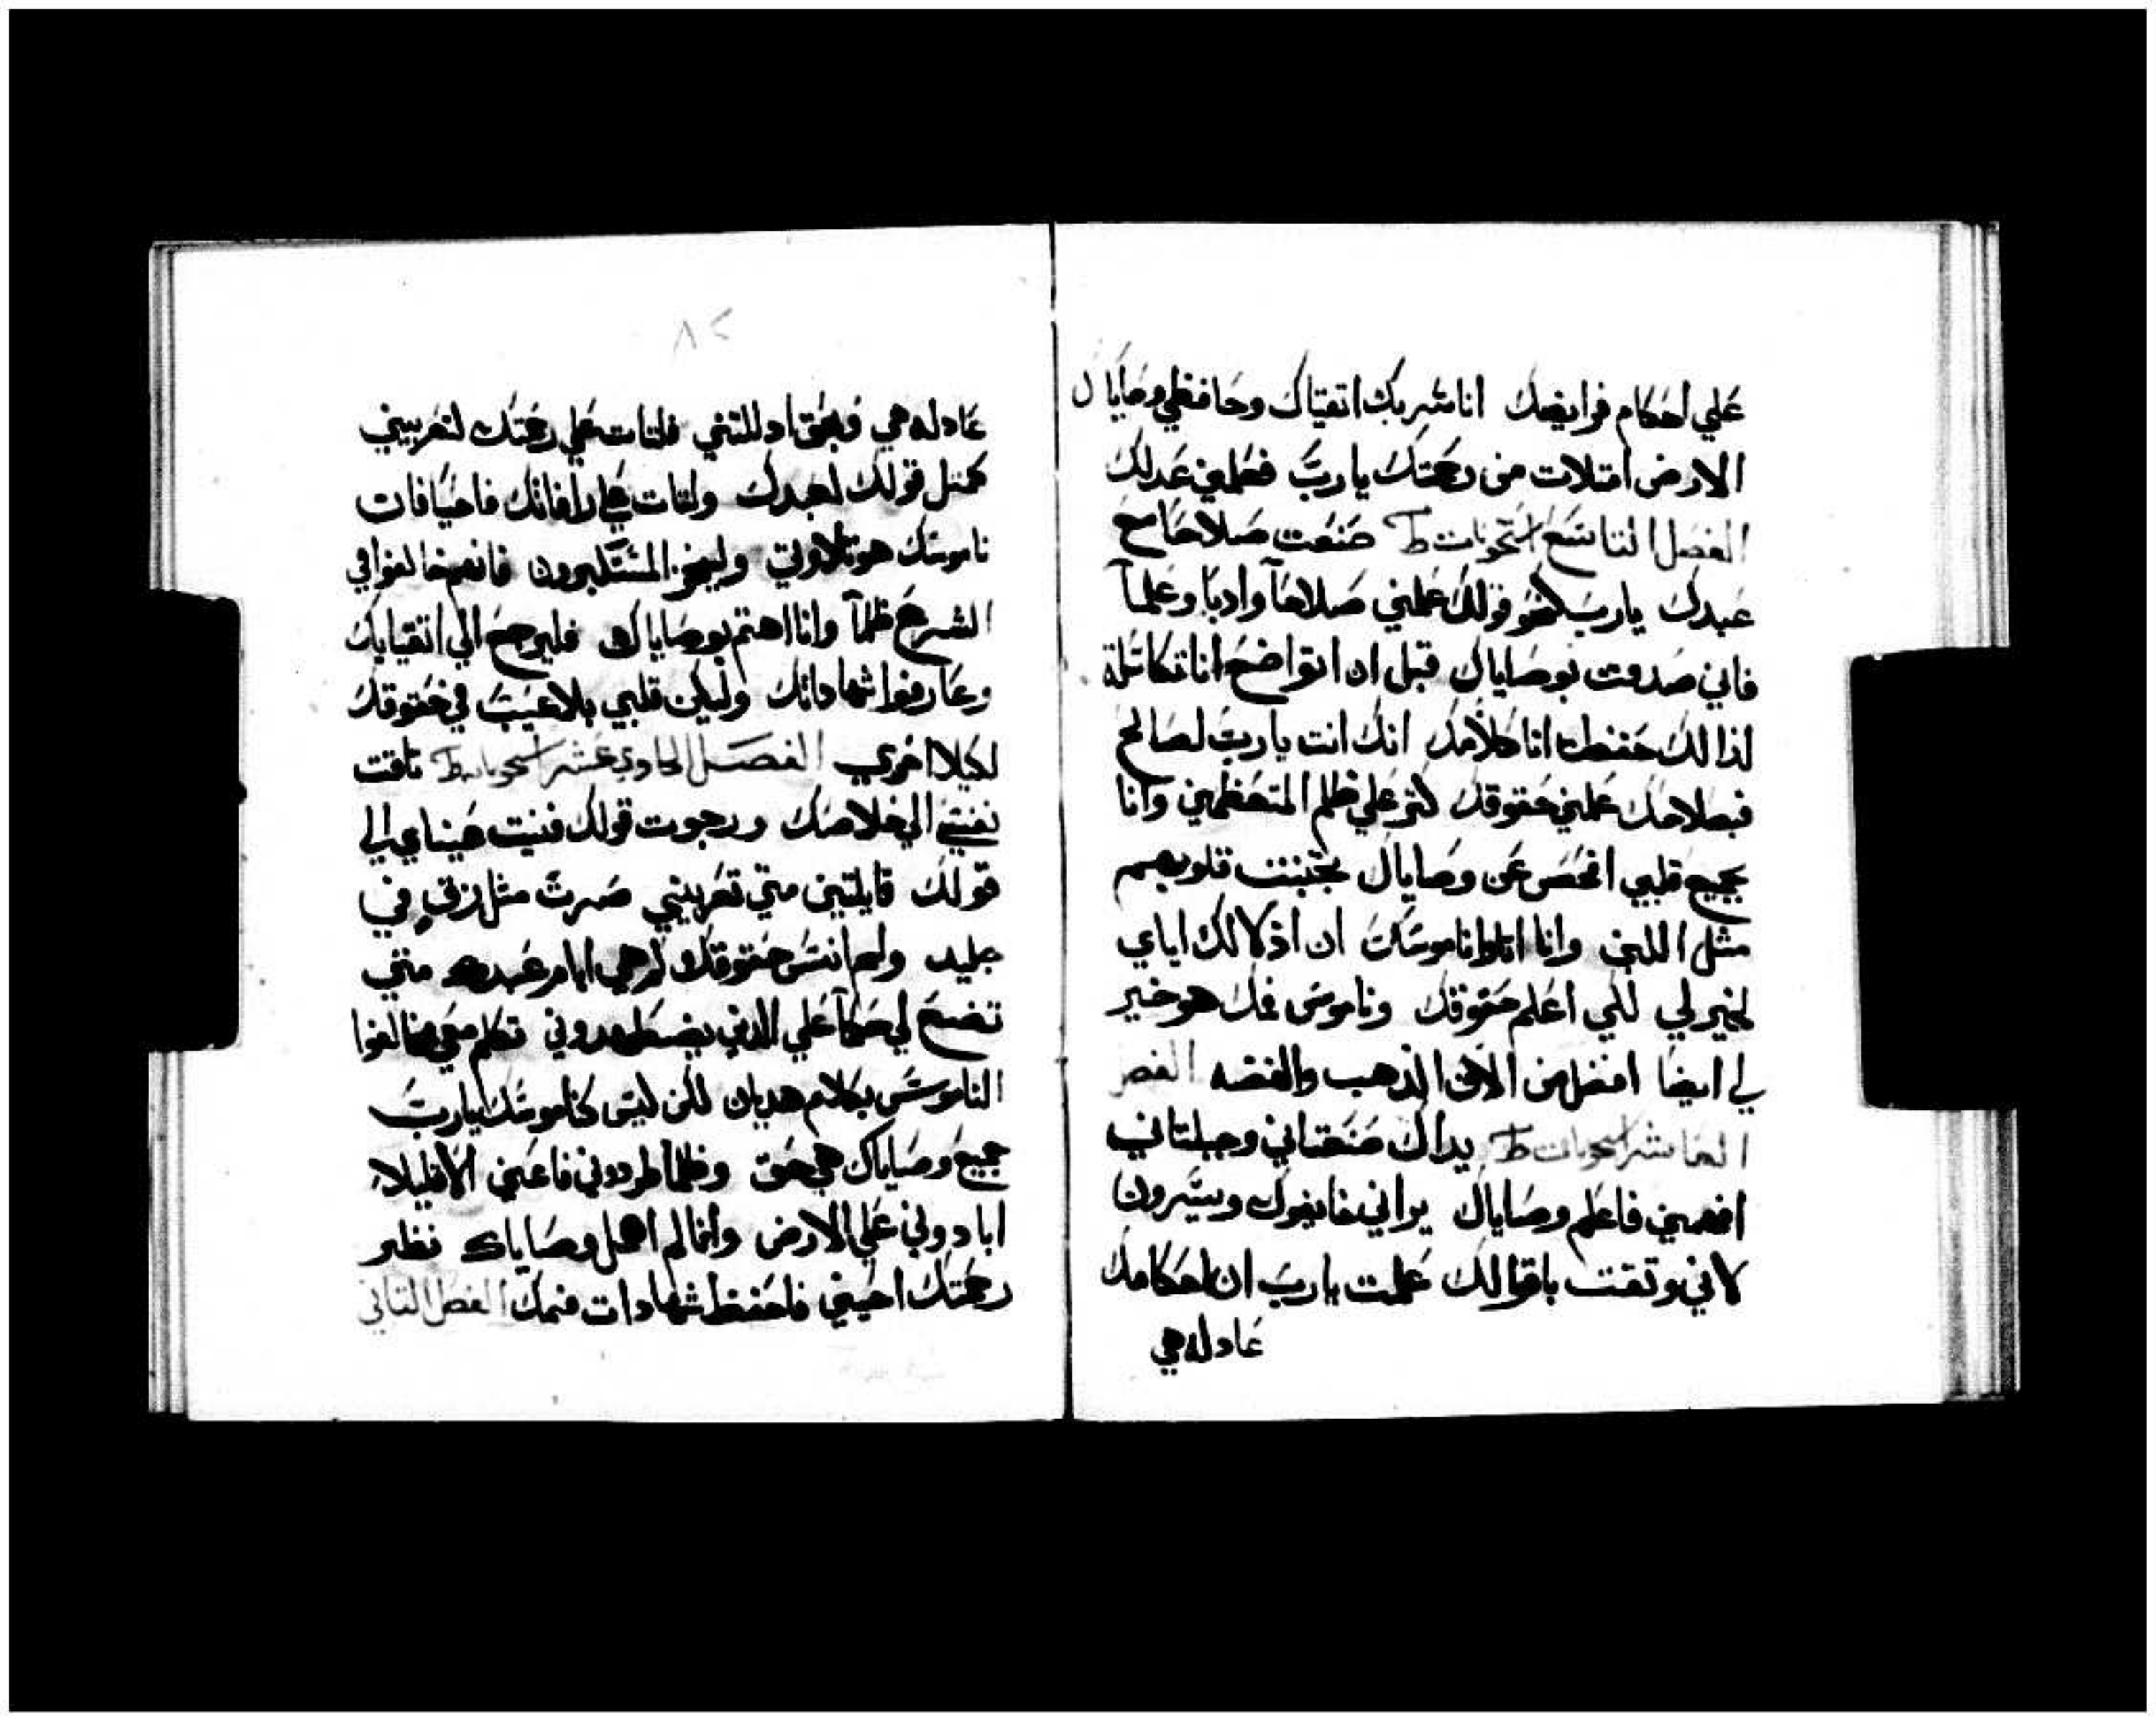 علي احكام فرايضك انا شريك اتقياك وحافظي وصاياك
الارض امتلات من رحمتك يا رب فعلمني عدلك
الفصل التاسع استخونات ط صنعت صلاحا مع
عبدك يا رب كنحو قولك علمني صلاحاً وادبا وعلماً
فاني صدقت بوصاياك قبل ان اتواضع انا تكاسلة
لذالك حفظت انا كلامك انك انت يا رب لصالح
فبصلاحك علمني حقوقك كثر علي ظلم المتعظمين وانا
بجميع قلبي افحص عن وصاياك تجبنت قلوبهم
مثل اللبن وانا اتلوا ناموسك ان اذلالك اياي
لخير لي لكي اعلم حقوقك وناموس فمك هو خير
لي ايضا افضل من الاف الذهب والفضه الفصل
العاشر استخونات ط يداك صنعتاني وجبلتاني
افهمني فاعلم وصاياك يراني خايفوك ويسرون
لاني وتقت باقوالك علمت يا رب ان احكامك
عادله هي
٨٢
عادله هي وبحق ادللتني فلتات علي رحمتك لتعزيني
كمثل قولك لعبدك ولتات علي رافاتك فاحيا فان
ناموسك هو تلاوتي وليخز المستكبرون فانهم خالفوا في
الشرع ظلماً وانا اهتم بوصاياك فليرجع الي اتقيايك
وعارفوا شهاداتك وليكن قلبي بلا عيب في حقوقك
لكيلا اخزي الفصل الحادي عشر استخونات ط تاقت
نفسي الي خلاصك ورجوت قولك فنيت عيناي الي
قولك قايلتين متي تعزيني صرت مثل زق في
جليد ولم انس حقوقك كم هي ايام عبدك متي
تصنع لي حكماً علي الذين يضطهدوني تكلم معي مخالفوا
الناموس بكلام هديان لكن ليس كناموسك يا رب
جميع وصاياك هي حق وظلما طردوني فاعني الا قليلا
ابادوني علي الارض وانا لم اهمل وصاياك نظير
رحمتك احييني فاحفظ شهادات فمك الفصل التاني